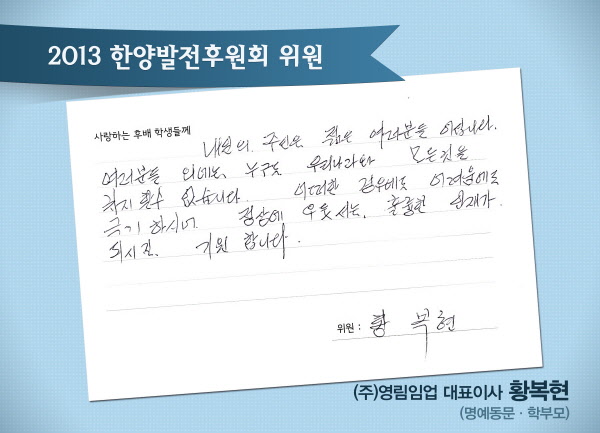 2013 한양발전후원회 위원
사랑하는 후배 학생들께
내일의 주인은 젊은 여러분들 이십니다.
여러분들 외에는 누구도 모든것을
할수 없습니다. 어떠한 경우에도 어려움에도
극기 하시어 정상에 우뚝서는, 훌륭한 인재가
되시길 기원 합니다.
위원 : 황 복 현
(주)영림임업 대표이사 황복현
(명예동문 · 학부모)